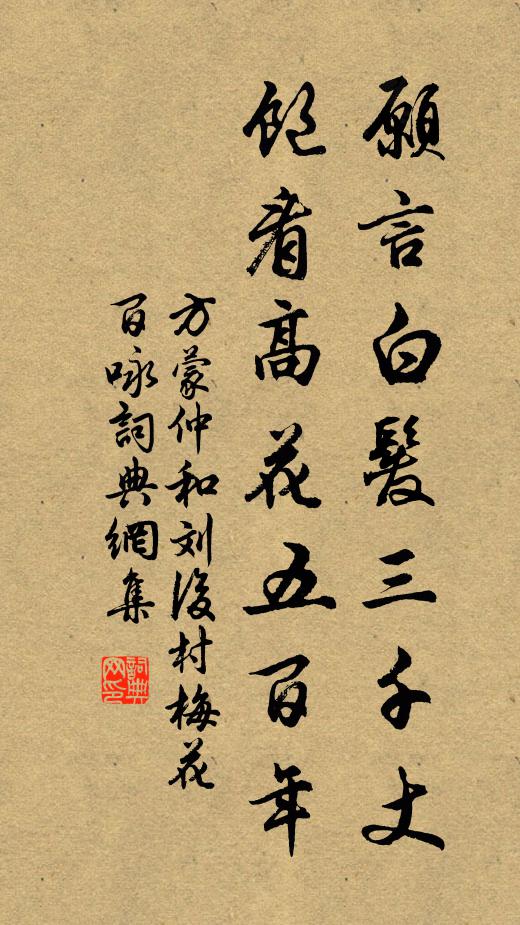 願言白髮三千丈
飽看高花五百年
方蒙仲和刘後村梅花
百咏詞典網集
詞典网印